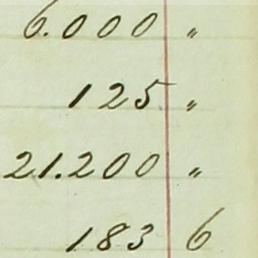 6.000 "
125 "
21.200 "
183 6